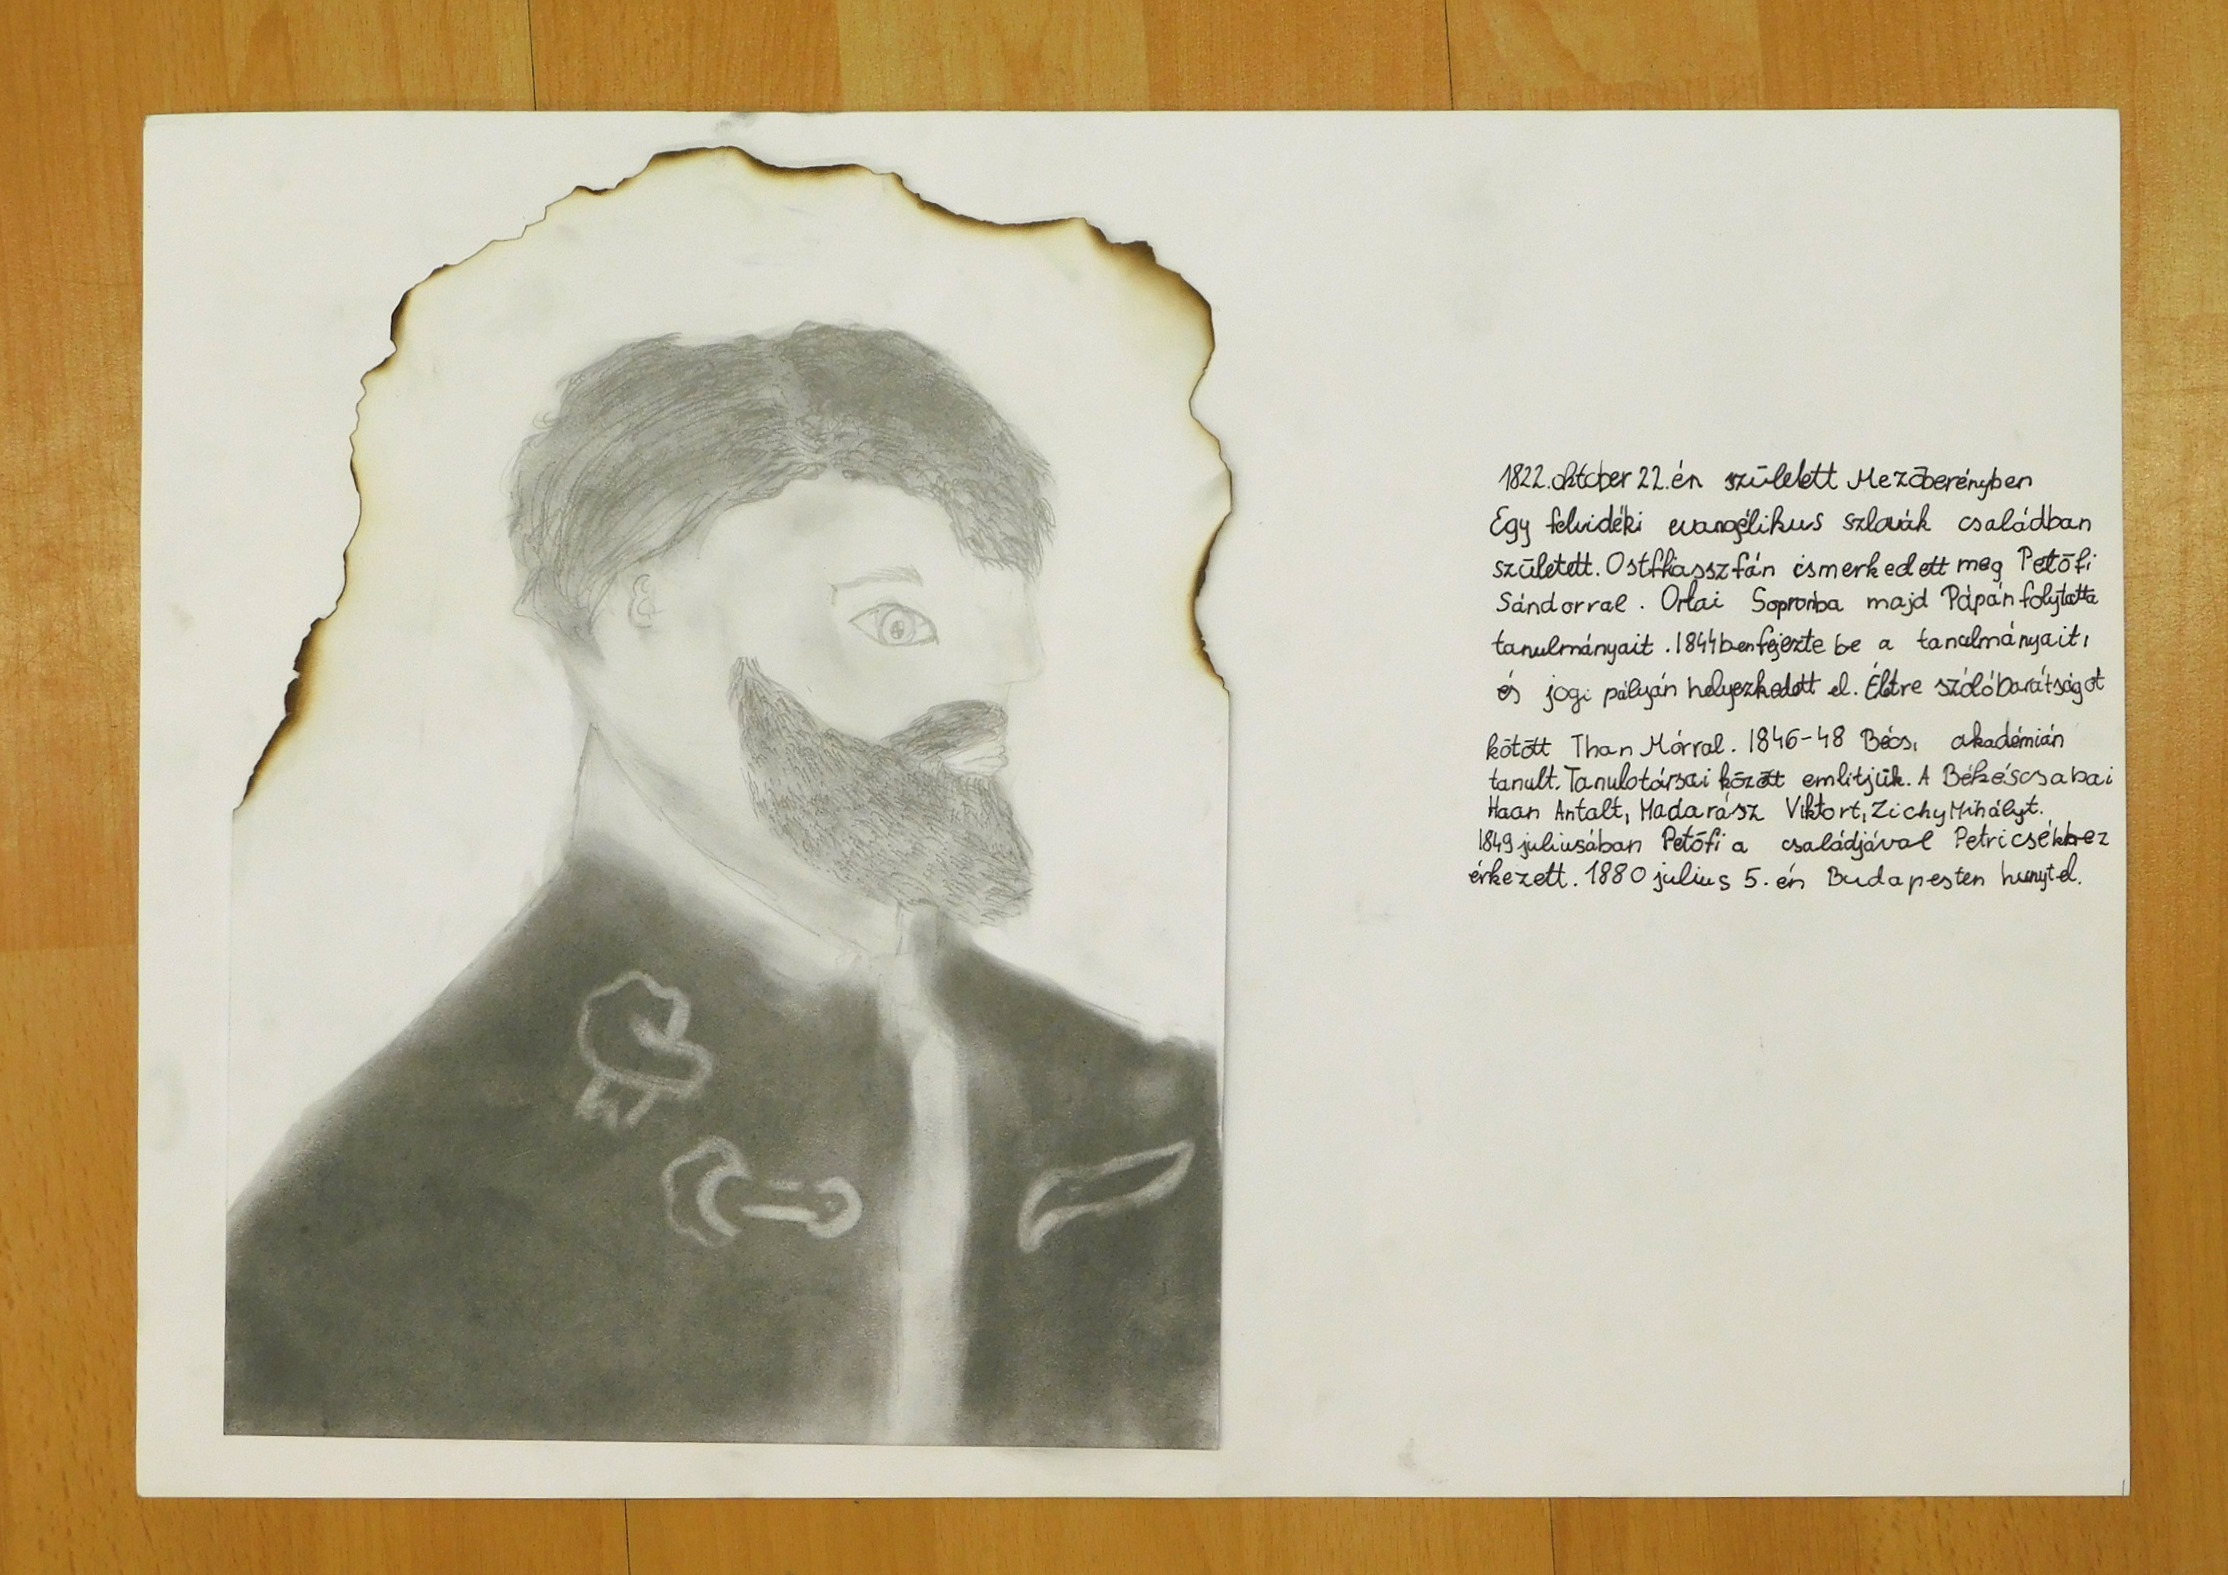 1822. oktober 22.én született Mezőberényben
Egy felvidéki evangélikus szlovák családban
született. Ostffiasszfán ismerkedett meg Petőfi
Sándorral. Orlai Sopronba majd Pápán folytatta
tanulmányait. 1844ben fejezte be a tanulmányait,
és jogi pályán helyezkedett el. Életre szóló barátságot
kötött Than Mórral. 1846-48 Bécs, akadémián
tanult. Tanulotársai között emlitjük. A Békéscsabai
Haan Antalt, Madarász Viktort, Zichy Mihályt.
1849 juliusában Petőfi a családjával Petricsékhez
érkezett. 1880 julius 5. én Budapesten hunyt el.